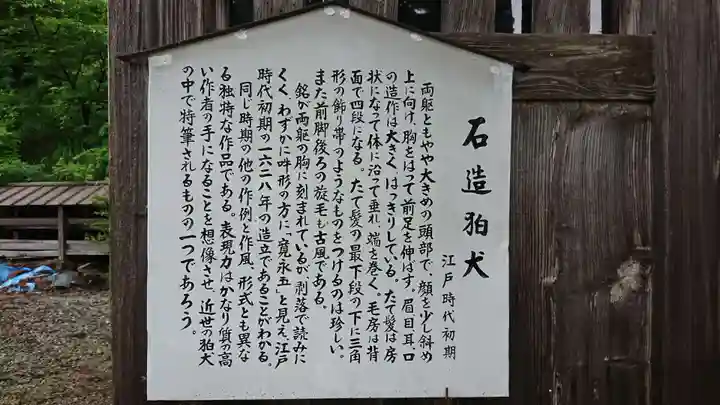 石造狛犬
江戸時代初期
両躯ともやや大きめの頭部で、顔を少し斜め
上に向け、胸をはって前足を伸ばす。眉目耳、口
の造作は大きく、はっきりしている。たて髪は房
状になって体に沿って垂れ、端を巻く、毛房は背
面で四段になる。たて髪の最下段の下に三角
形の飾り帯のようなものをつけるのは珍しい。
また前脚後ろの旋毛も古風である。
銘が両躯の胸に刻まれているが剥落で読みに
くく、わずかに吽形の方に、「寛永五」と見え、江戸
時代初期の一六二八年の造立であることがわかる。
同じ時期の他の作例と作風、形式とも異な
る独特な作品である。表現力はかなり質の高
い作者の手になることを想像させ、近世の狛犬
の中で特筆されるものの一つであろう。